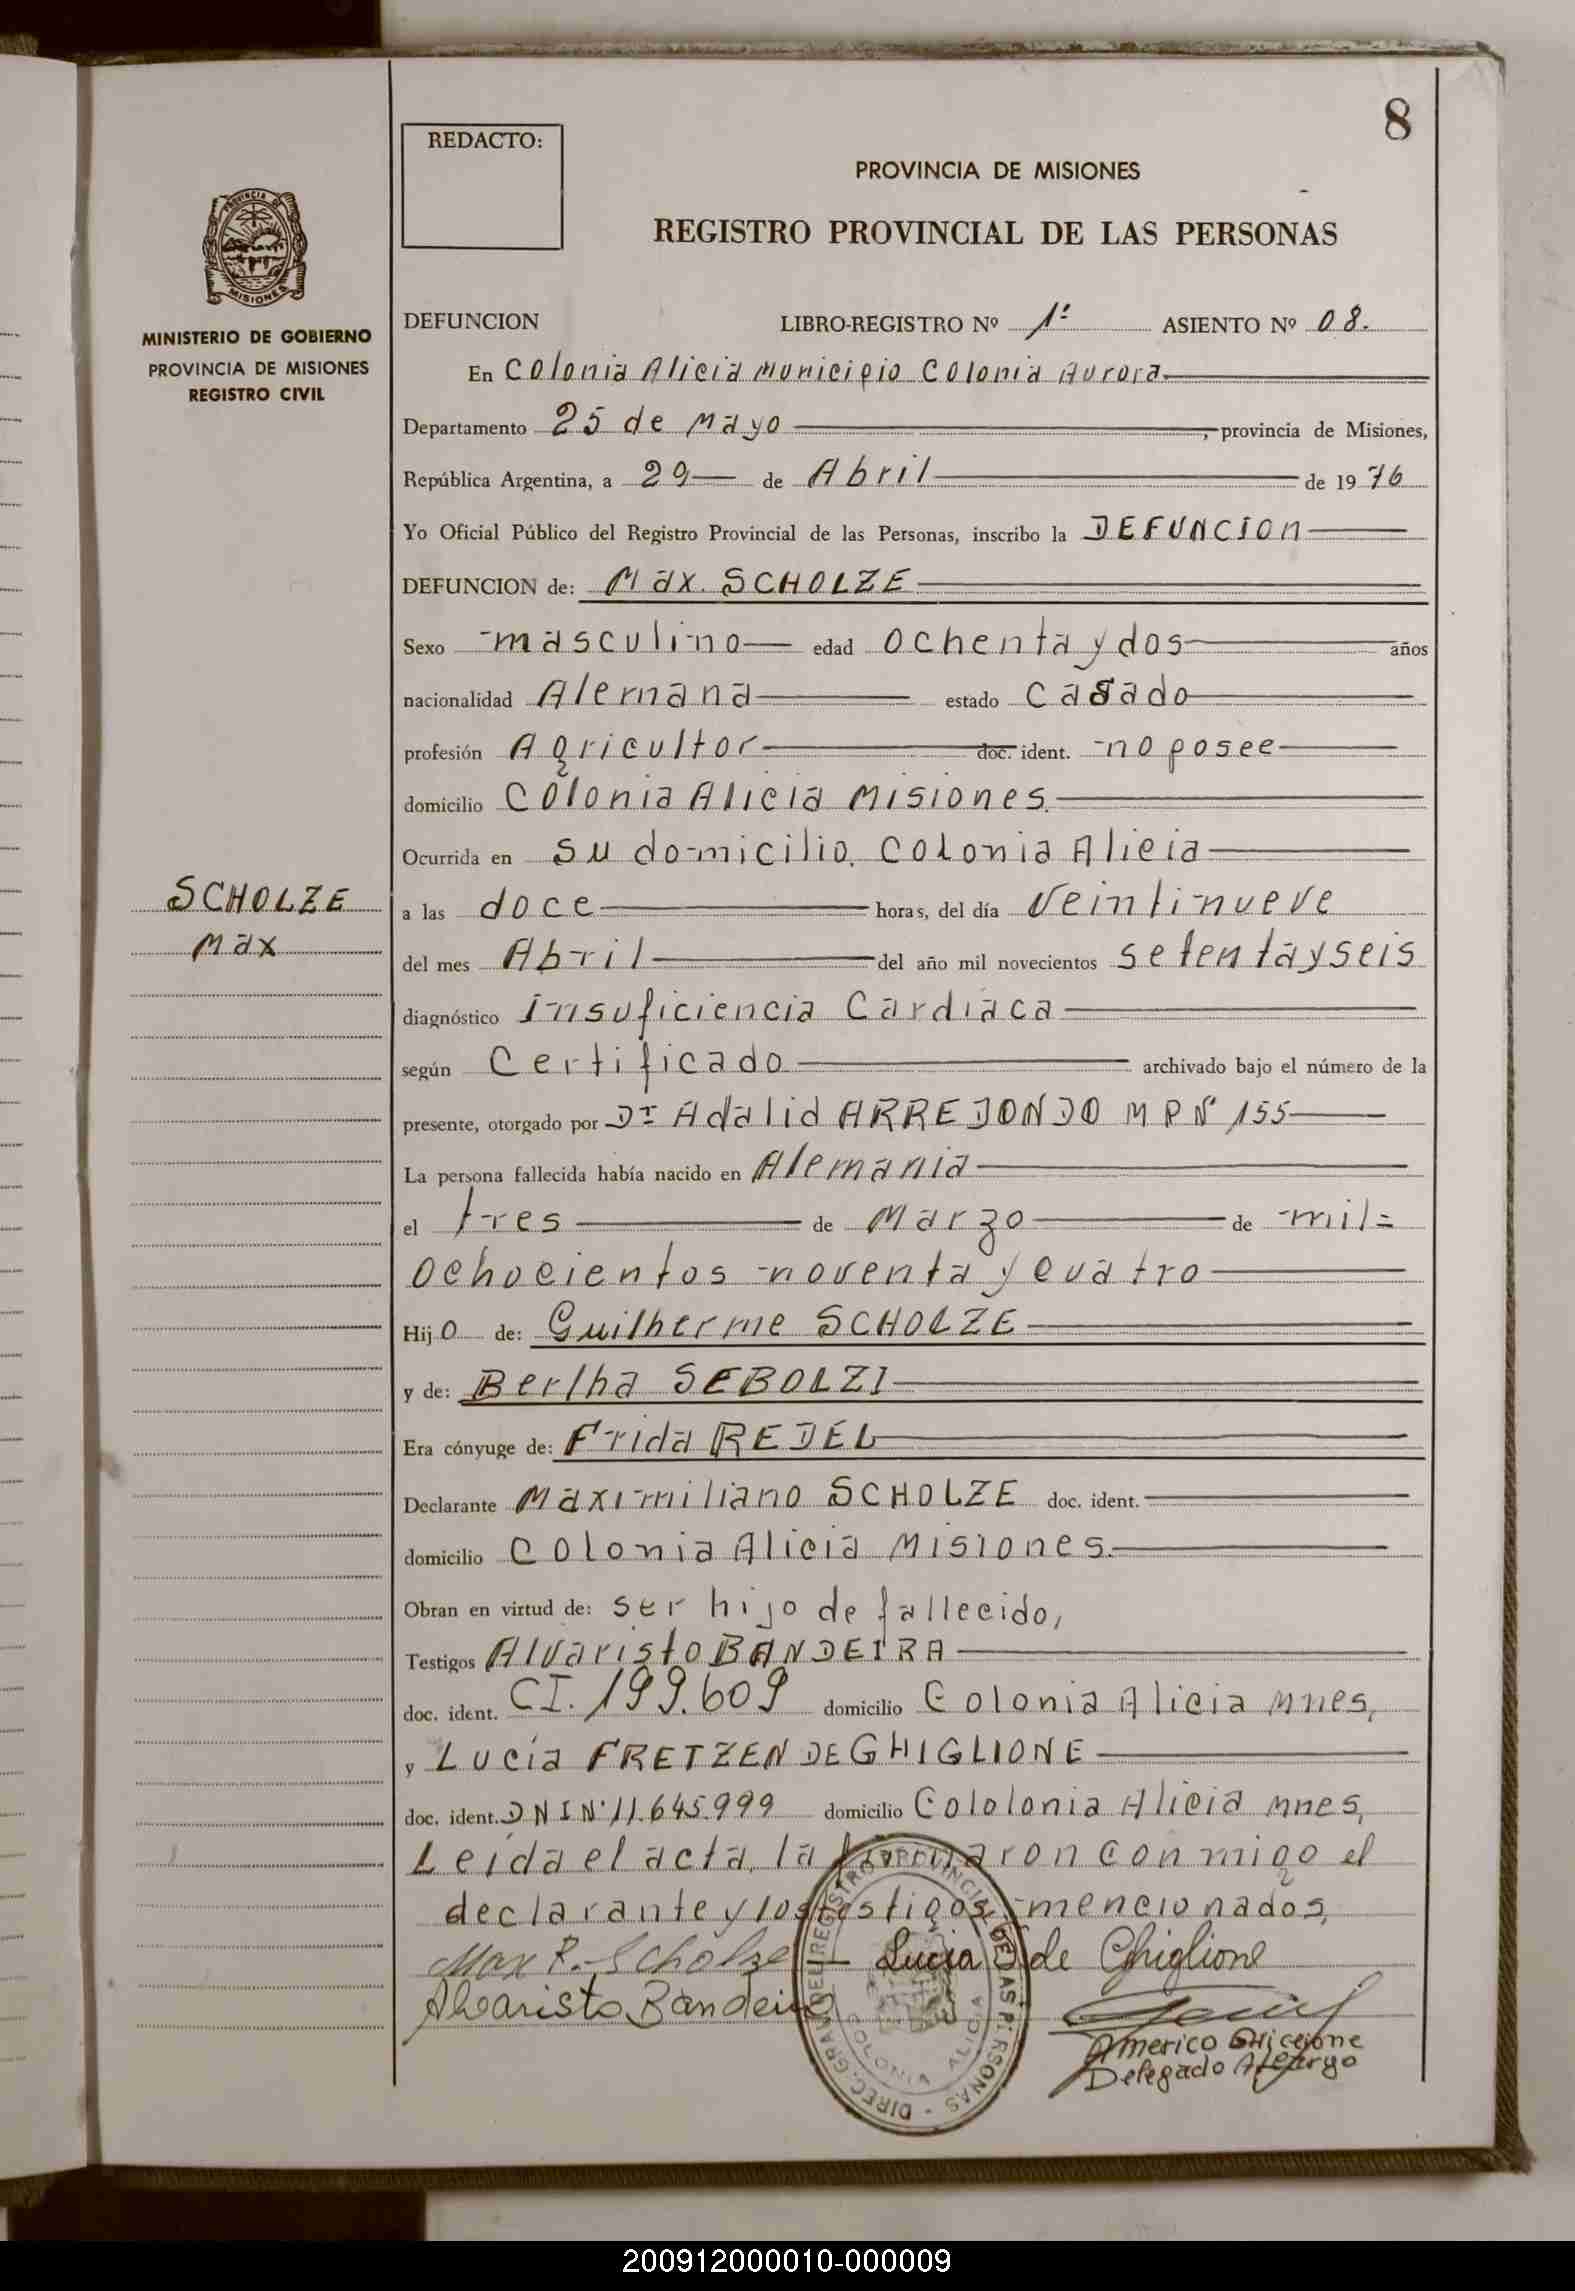 8
REDACTO:
PROVINCIA DE MISIONES
REGISTRO PROVINCIAL DE LAS PERSONAS
PROVINCIA DE
MISIONES
MINISTERIO DE GOBIERNO
PROVINCIA DE MISIONES
REGISTRO CIVIL
DEFUNCION LIBRO-REGISTRO Nº 1º ASIENTO Nº 08.
En Colonia Alicia Municipio Colonia Aurora
Departamento 25 de Mayo, provincia de Misiones,
República Argentina, a 29 de Abril de 1976
Yo Oficial Público del Registro Provincial de las Personas, inscribo la DEFUNCION
DEFUNCION de: Max. SCHOLZE
Sexo masculino edad ochenta y dos años
nacionalidad Alemana estado Casado
profesión Agricultor doc. ident. no posee
domicilio Colonia Alicia Misiones.
Ocurrida en su domicilio. Colonia Alicia
SCHOLZE
Max
a las doce horas, del día Veintinueve
del mes Abril del año mil novecientos setenta y seis
diagnóstico Insuficiencia Cardiaca
según Certificado archivado bajo el número de la
presente, otorgado por Dr Adalid ARREDONDO M P Nº 155
La persona fallecida había nacido en Alemania
el tres de Marzo de mil=
ochocientos noventa y cuatro
Hijo de: Guilherme SCHOLZE
y de: Bertha SEBOLZI
Era cónyuge de: Frida REDEL
Declarante Maximiliano SCHOLZE doc. ident.
domicilio Colonia Alicia Misiones.
Obran en virtud de: ser hijo de fallecido,
Testigos Alvaristo BANDEIRA
doc. ident. CI. 199.609 domicilio Colonia Alicia Mnes,
y Lucía FRETZEN DE GHIGLIONE
doc. ident. DNI Nº 11.645.999 domicilio Cololonia Alicia Mnes,
Leída el acta, la firmaron conmigo el
declarante y los testigos mencionados,
Max R. Scholze Lucia de Ghiglione
Alvaristo Bandeira
Americo Ghiglione
Delegado A/cargo
DIREC. GRAL. DEL REGISTRO PROVINCIAL DE LAS PERSONAS -
COLONIA ALICIA
200912000010-000009